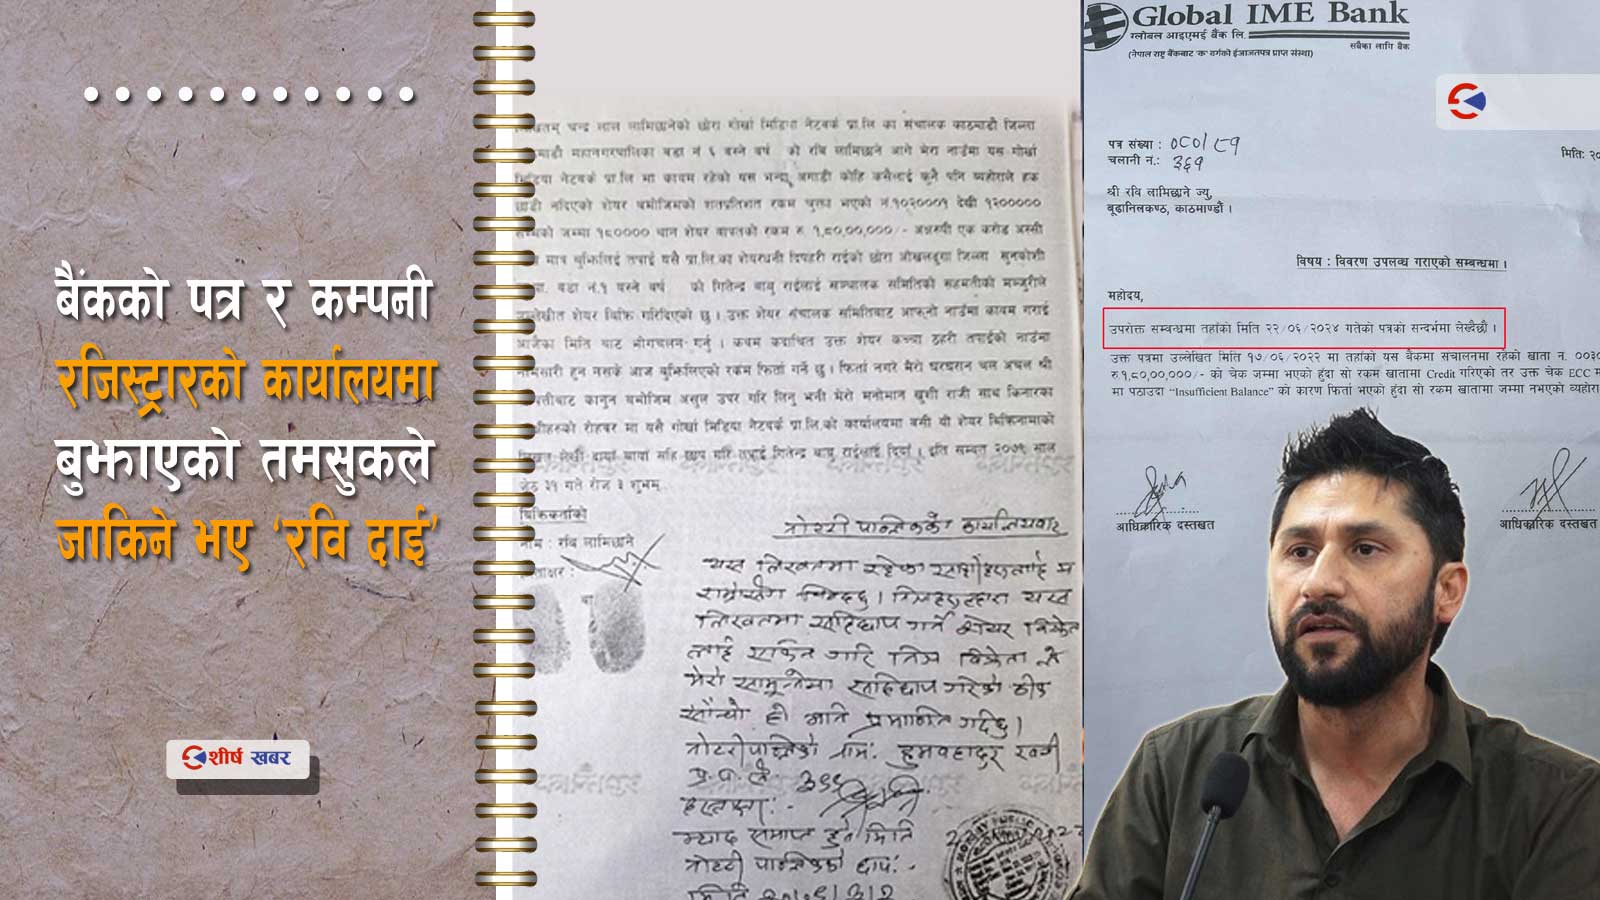 बैंकको पत्र र कम्पनी
रजिस्ट्रारको कार्यालयमा
बुझाएको तमसुकले
जाकिने भए ‘रवि दाई’
शीर्ष खबर
चन्द्र लाल लामिछानेको छोरा गोर्खा मिडिया नेटवर्क प्रा.लि का संचालक काठमाडौ जिल्ला
महानगरपालिका वडा नं ६ बस्ने वर्ष को रवि लामिछाने आगे मेरा नाउँमा यस गोर्खा
मिडिया नेटवर्क प्रा.लि मा कायम रहेको यस भन्दा अगाडी कोहि कसैलाई कुनै पनि व्यहोराले हक
छाडी नदिएको शेयर बमोजिमको शतप्रतिशत रकम चुक्ता भएको नं.१०२०००१ देखी १२०००००
जम्मा १८०००० थान शेयर वापतको रकम रु १,८०,००,०००/- अक्षरुपी एक करोड अस्सी
मात्र बुझिलिई तपाई यसै प्रा.लि.का शेयरधनी दिपहरी राईको छोरा ओखलढुंगा जिल्ला सुनकोशी
वडा नं.१ बस्ने वर्ष को गितेन्द्र बाबु राईलाई सञ्चालक समितिको सहमतीको मञ्जुरीले
उल्लेखीत शेयर बिक्रि गरिदिएको छु । उक्त शेयर संचालक समितिबाट आफ्नो नाउँमा कायम गराई
आजैका मिति बाट भोगचलन गर्नु । कथम कदाचित उक्त शेयर कच्चा ठहरी तपाईको नाउँमा
नामसारी हुन नसके आज बुझिलिएको रकम फिर्ता गर्ने छु । फिर्ता नगरे मेरो घरघरान चल अचल श्री
कानुन बमोजिम असुल उपर गरि लिनु भनी मेरो मनोमान खुशी राजी साथ किनारका
रोहवर मा यसै गोर्खा मिडिया नेटवर्क प्रा.लि.को कार्यालयमा बसी यो शेयर बिक्रिनामाको
लिखत लेखी दायाँ बायाँ सहि छाप गरि तपाई गितेन्द्र बाबु राईलाई दिएाँ । इति सम्वत २०७९ साल
जेठ ३१ गते रोज ३ शुभम्..
बिक्रिकर्ताको
नाम : रवि लामिछाने
नोटरी पब्लिकको कार्यालयबाट
यस लिखतमा रहेका
लिखतमा सहिछाप गर्ने शेयर विक्रेता
लाई सचित गरि निज विक्रेता ले
मेरो सामुन्नेमा सहिछाप गरेको ठीक
साँचो हो भनि प्रमाणित गर्दछु ।
नोटरी पब्लिकको नाम: हुमबहादुर
प्र.प.नं. ३६६
हस्ताक्षर: -
म्याद समाप्त हुने मिति
नोटरी पब्लिकको छाप: -
मिति २०७९।३।२
Global IME Bank
ग्लोबल आइएमई बैंक लि.
सबैका लागि बैंक
(नेपाल राष्ट्र बैंकबाट 'क' वर्गको इजाजतपत्र प्राप्त संस्था)
पत्र संख्या : ०८०/८१
चलानी नं.: ३६१
मिति: २०
श्री रवि लामिछाने ज्यु,
बूढानिलकण्ठ, काठमाण्डौं ।
विषय : विवरण उपलब्ध गराएको सम्बन्धमा ।
महोदय,
उपरोक्त सम्बन्धमा तहाँको मिति २२/०६/२०२४ गतेको पत्रको सन्दर्भमा लेख्दैछौं ।
उक्त पत्रमा उल्लेखित मिति १७/०६/२०२२ मा तहांको यस बैंकमा संचालनमा रहेको खाता न. ००३०
रु.१,८०,००,०००/- को चेक जम्मा भएको हुंदा सो रकम खातामा Credit गरिएको तर उक्त चेक ECC म
मा पठाउदा “Insufficient Balance” को कारण फिर्ता भएको हुंदा सो रकम खातामा जम्मा नभएको व्यहोरा
आधिकारिक दस्तखत
आधिकारिक दस्तखत